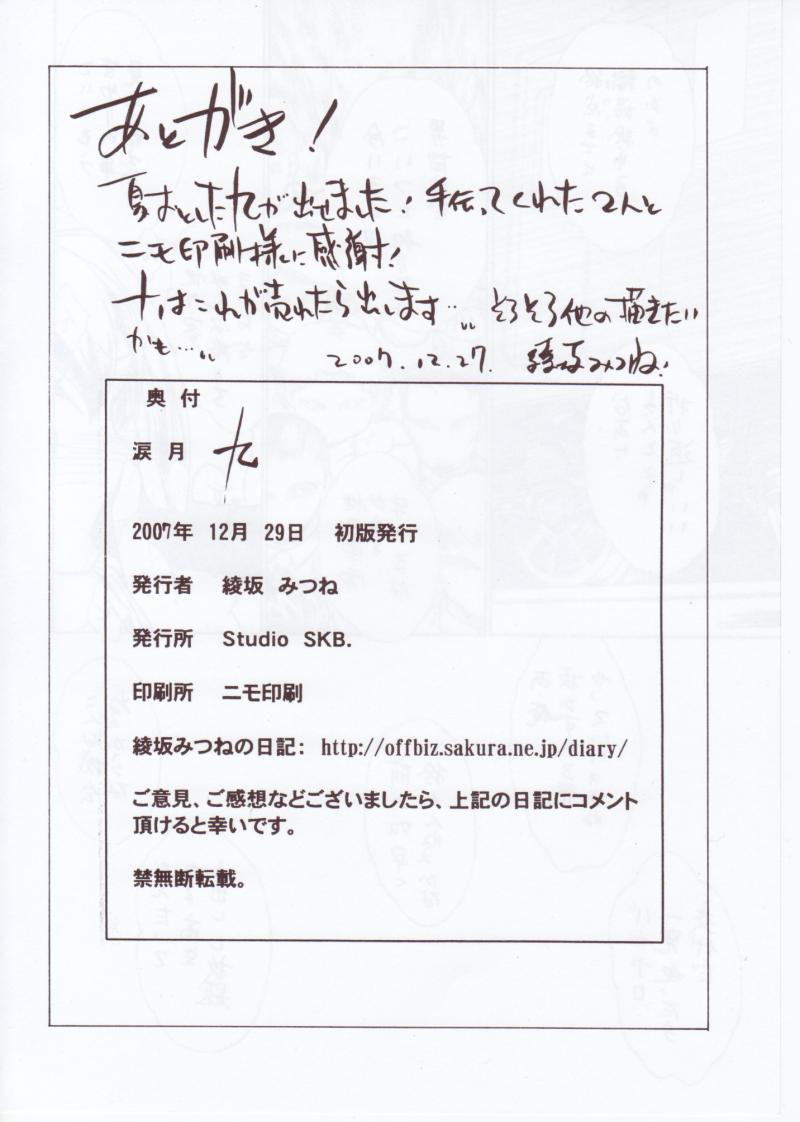 あとがき！
夏おとした九が出せました！手伝ってくれた2人と
ニモ印刷様に感謝！
十はこれが売れたら出します…。そろそろ他の描きたい
かも…。
2007.12.27. 綾坂みつね！
奥付
涙月 九
2007年 12月 29日 初版発行
発行者 綾坂 みつね
発行所 Studio SKB.
印刷所 ニモ印刷
綾坂みつねの日記： http://offbiz.sakura.ne.jp/diary/
ご意見、ご感想などございましたら、上記の日記にコメント
頂けると幸いです。
禁無断転載。